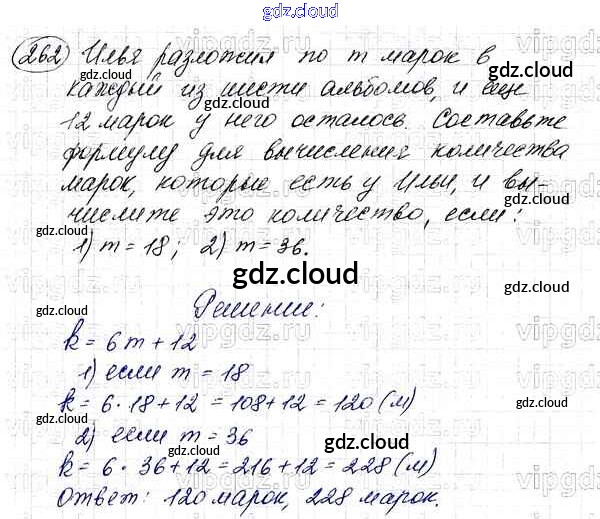 gdz.cloud
262 Илья разложил по m марок в
каждый из шести альбомов, и еще
12 марок у него осталось. Составьте
формулу для вычисления количества
марок, которые есть у Ильи, и вы-
числите это количество, если:
1) m = 18; 2) m = 36.
gdz.cloud
Решение:
k = 6m + 12
1) если m = 18
k = 6 · 18 + 12 = 108 + 12 = 120 (м)
2) если m = 36
k = 6 · 36 + 12 = 216 + 12 = 228 (м)
Ответ: 120 марок, 228 марок.
gdz.cloud